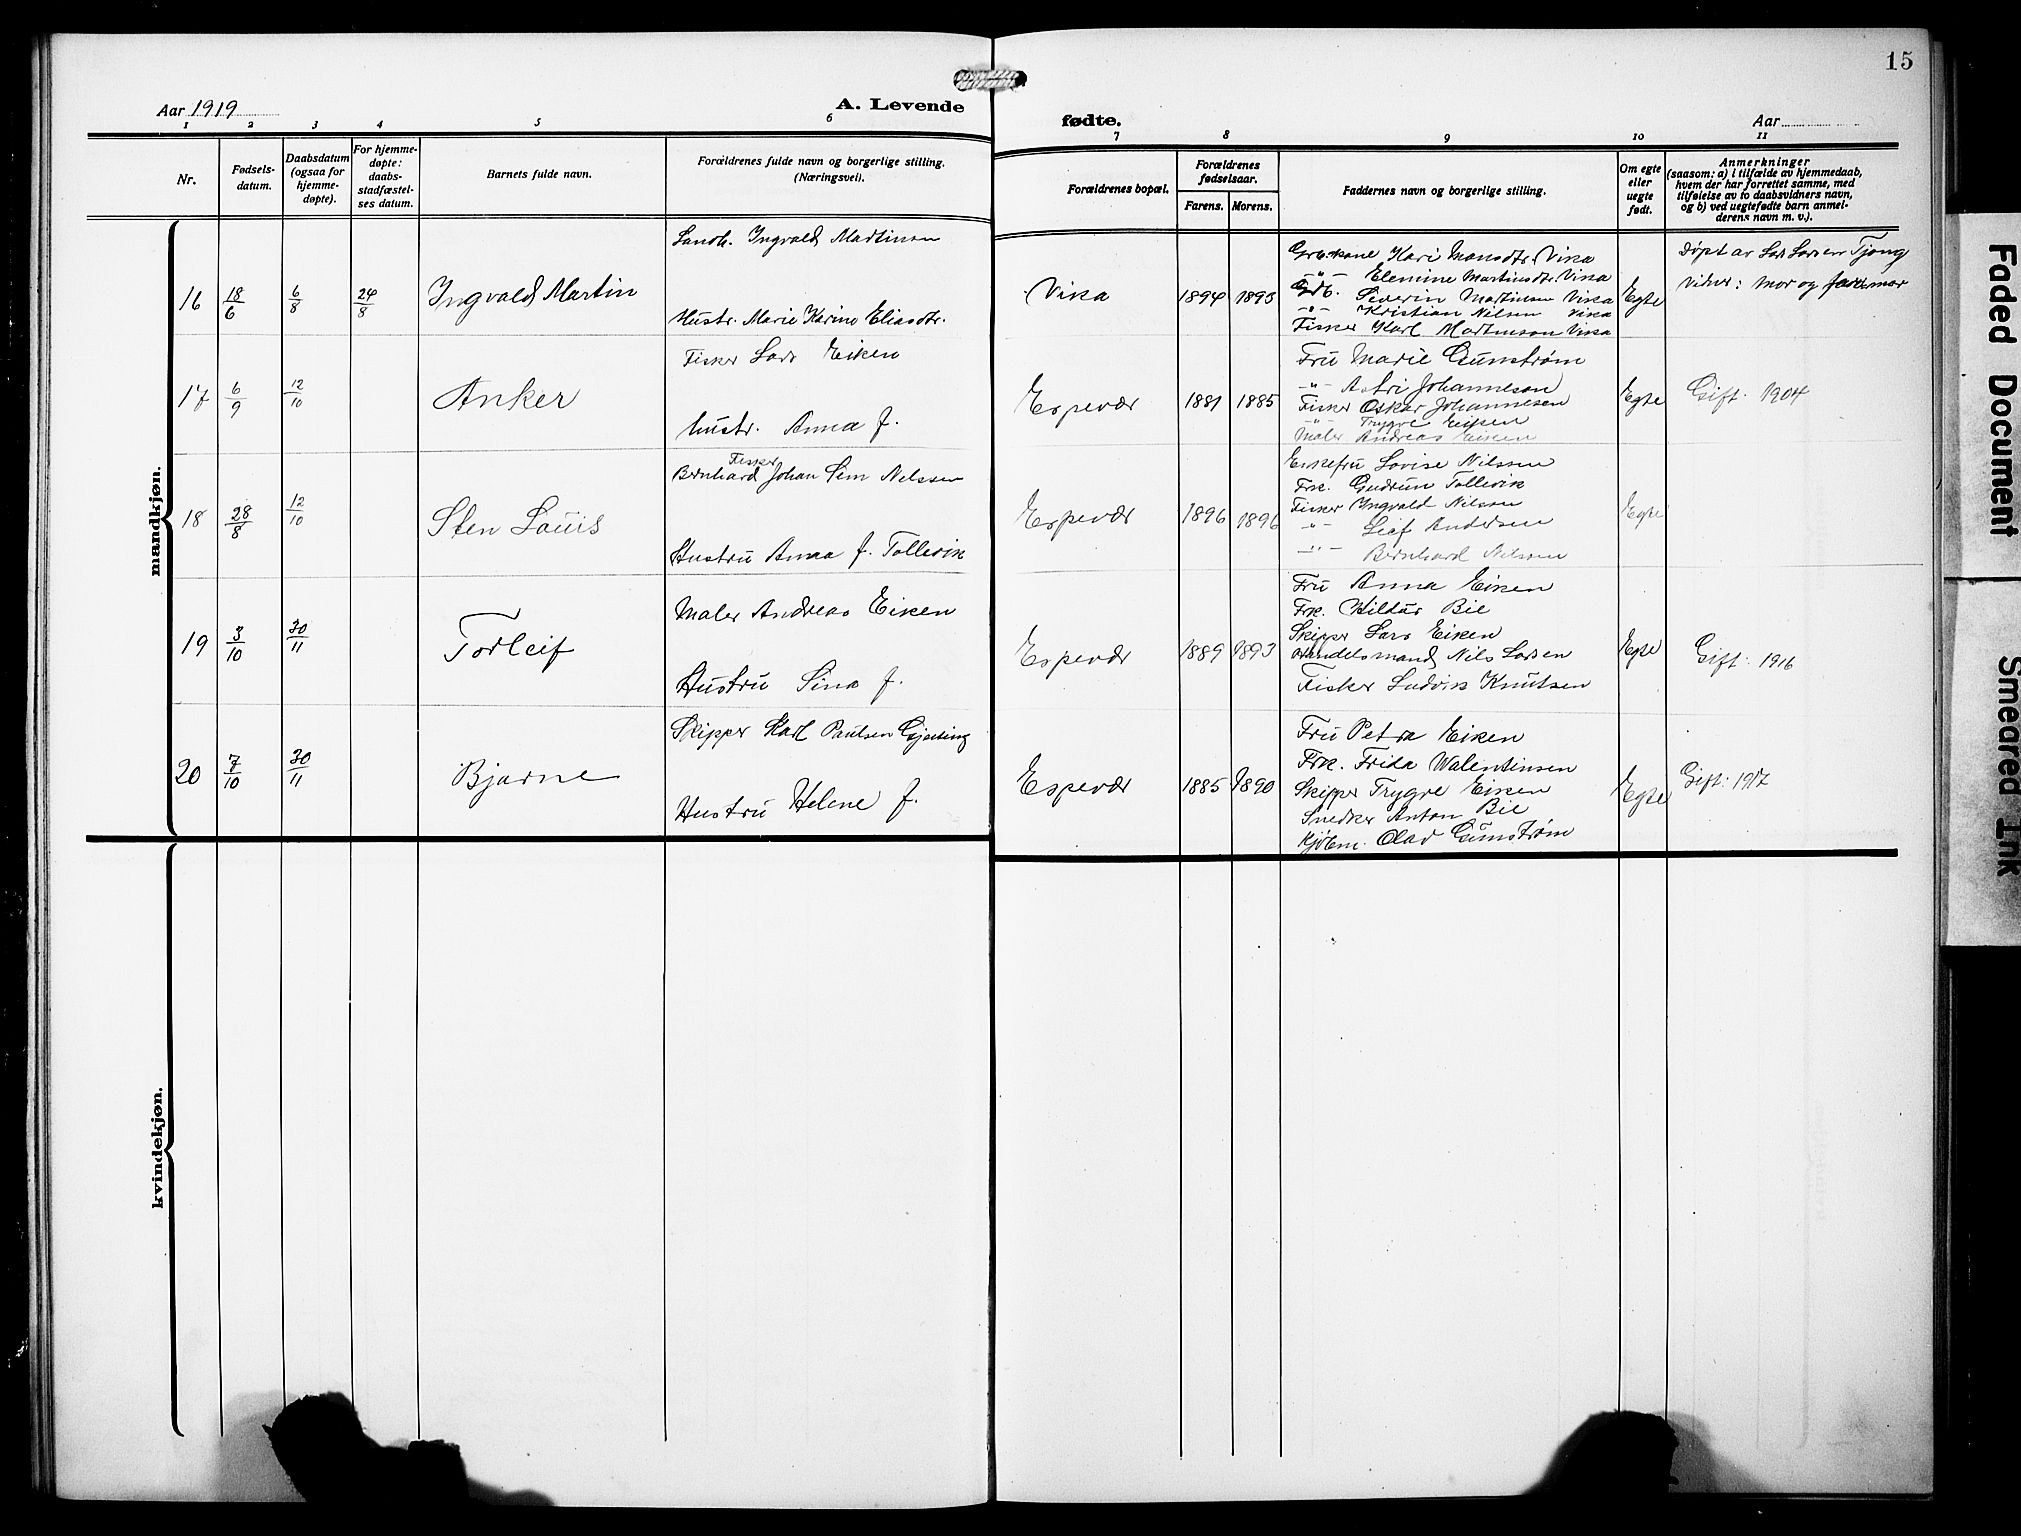 15
Aar 1919
A. Levende
fødte.
Aar
1 2 3 4 5 6 7 8 9 10 11
Nr.
Fødsels-
datum.
Daabsdatum
(ogsaa for
hjemme-
døpte).
For hjemme-
døpte:
daabs-
stadfæstel-
ses datum.
Barnets fulde navn.
Forældrenes fulde navn og borgerlige stilling.
(Næringsvei).
Forældrenes bopæl.
Forældrenes
fødselsaar.
Farens. Morens.
Faddernes navn og borgerlige stilling.
Om egte
eller
uegte
født.
Anmerkninger
(saasom: a) i tilfælde av hjemmedaab,
hvem der har forrettet samme, med
tilføielse av to daabsvidners navn,
og b) ved uegtefødte barn anmel-
derens navn m. v.).
mandkjøn.
16 18/6 6/8 24/8 Ingvald Martin
Ingvald Martinsen
Hustr. Marie Karine Eliasdtr.
Vika 1894 1895
Grb.kone Kari Monsdtr. Vika
-"- Elemine Martinsdtr. Vika
Grb. Severin Martinsen Vika
-"- Kristian Nilsen Vika
Fisker Karl Martinson Vika
Egte
døpt av Lars Larsen Tjong
vidner: mor og farmor
17 6/9 12/10 Anker
Fisker Lars Eiken
hustr. Anna f.
Espevær 1881 1885
Fru Marie Gunstrøm
-"- Astri Johannesen
Fisker Oskar Johannesen
-"- Trygve Eiken
Maler Andreas Eiken
Egte
Gift. 1904
18 28/8 12/10 Sten Louis
Fisker
Bernhard Johan Sem Nelssen
Hustru Anna f. Tollevik
Espevær 1896 1896
Enkefru Lovise Nilssen
Frk. Gudrun Tollevik
Fisker Ingvald Nilsen
-"- Leif Andersen
-"- Bernhard Nilssen
Egte
19 3/10 30/11 Torleif
Maler Andreas Eiken
Hustru Sina f.
Espevær 1889 1893
Fru Anna Eiken
Frk. Hildur Bie
Skipper Lars Eiken
Handelsmand Nils Larsen
Fisker Ludvik Knutsen
Egte
Gift: 1916
20 7/10 30/11 Bjarne
Skipper Karl Paulsen
Hustru Helene f.
Espevær 1885 1890
Fru Petra Eiken
Frk. Frida Walentinsen
Skipper Trygve Eiken
Snedker Anton Bie
Kjøbm. Olav Gunstrøm
Egte
Gift: 1917
kvindekjøn.
Faded Document
Smeared Ink